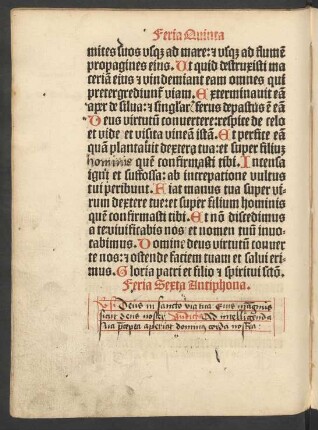 Feria Quinta
mites suos vsqȝ ad mare: ⁊ vsqȝ ad flumē
propagines eius. Ut quid destruxisti ma
ceriā eius ⁊ vindemiant eam omnes qui
pretergrediunť viam. Exterminauit eā
apr de silua: ⁊ singlar̄ ferus depastus ē eā
Deus virtutū conuertere: respice de celo
et vide et visita vineā istā. Et perfice eā
quā plantauit dextera tua: et super filiuȝ
hominis quē confirmasti tibi. Incensa
igni et suffossa: ab increpatione vultus
tui peribunt. Fiat manus tua super vi
rum dextere tue: et super filium hominis
quē confirmasti tibi. Et nō discedimus
a te viuificabis nos et nomen tuū inuo
cabimus. Domine deus virtutū conuer
te nos: ⁊ ostende faciem tuam et salui eri
mus. Gloria patri et filio ⁊ spiritui sctō.
Feria Sexta Antiphona.
Deus in sancto via tua Quis magnus
sicut deus noster Ad intelligenda
aperiat dominus corda nostra